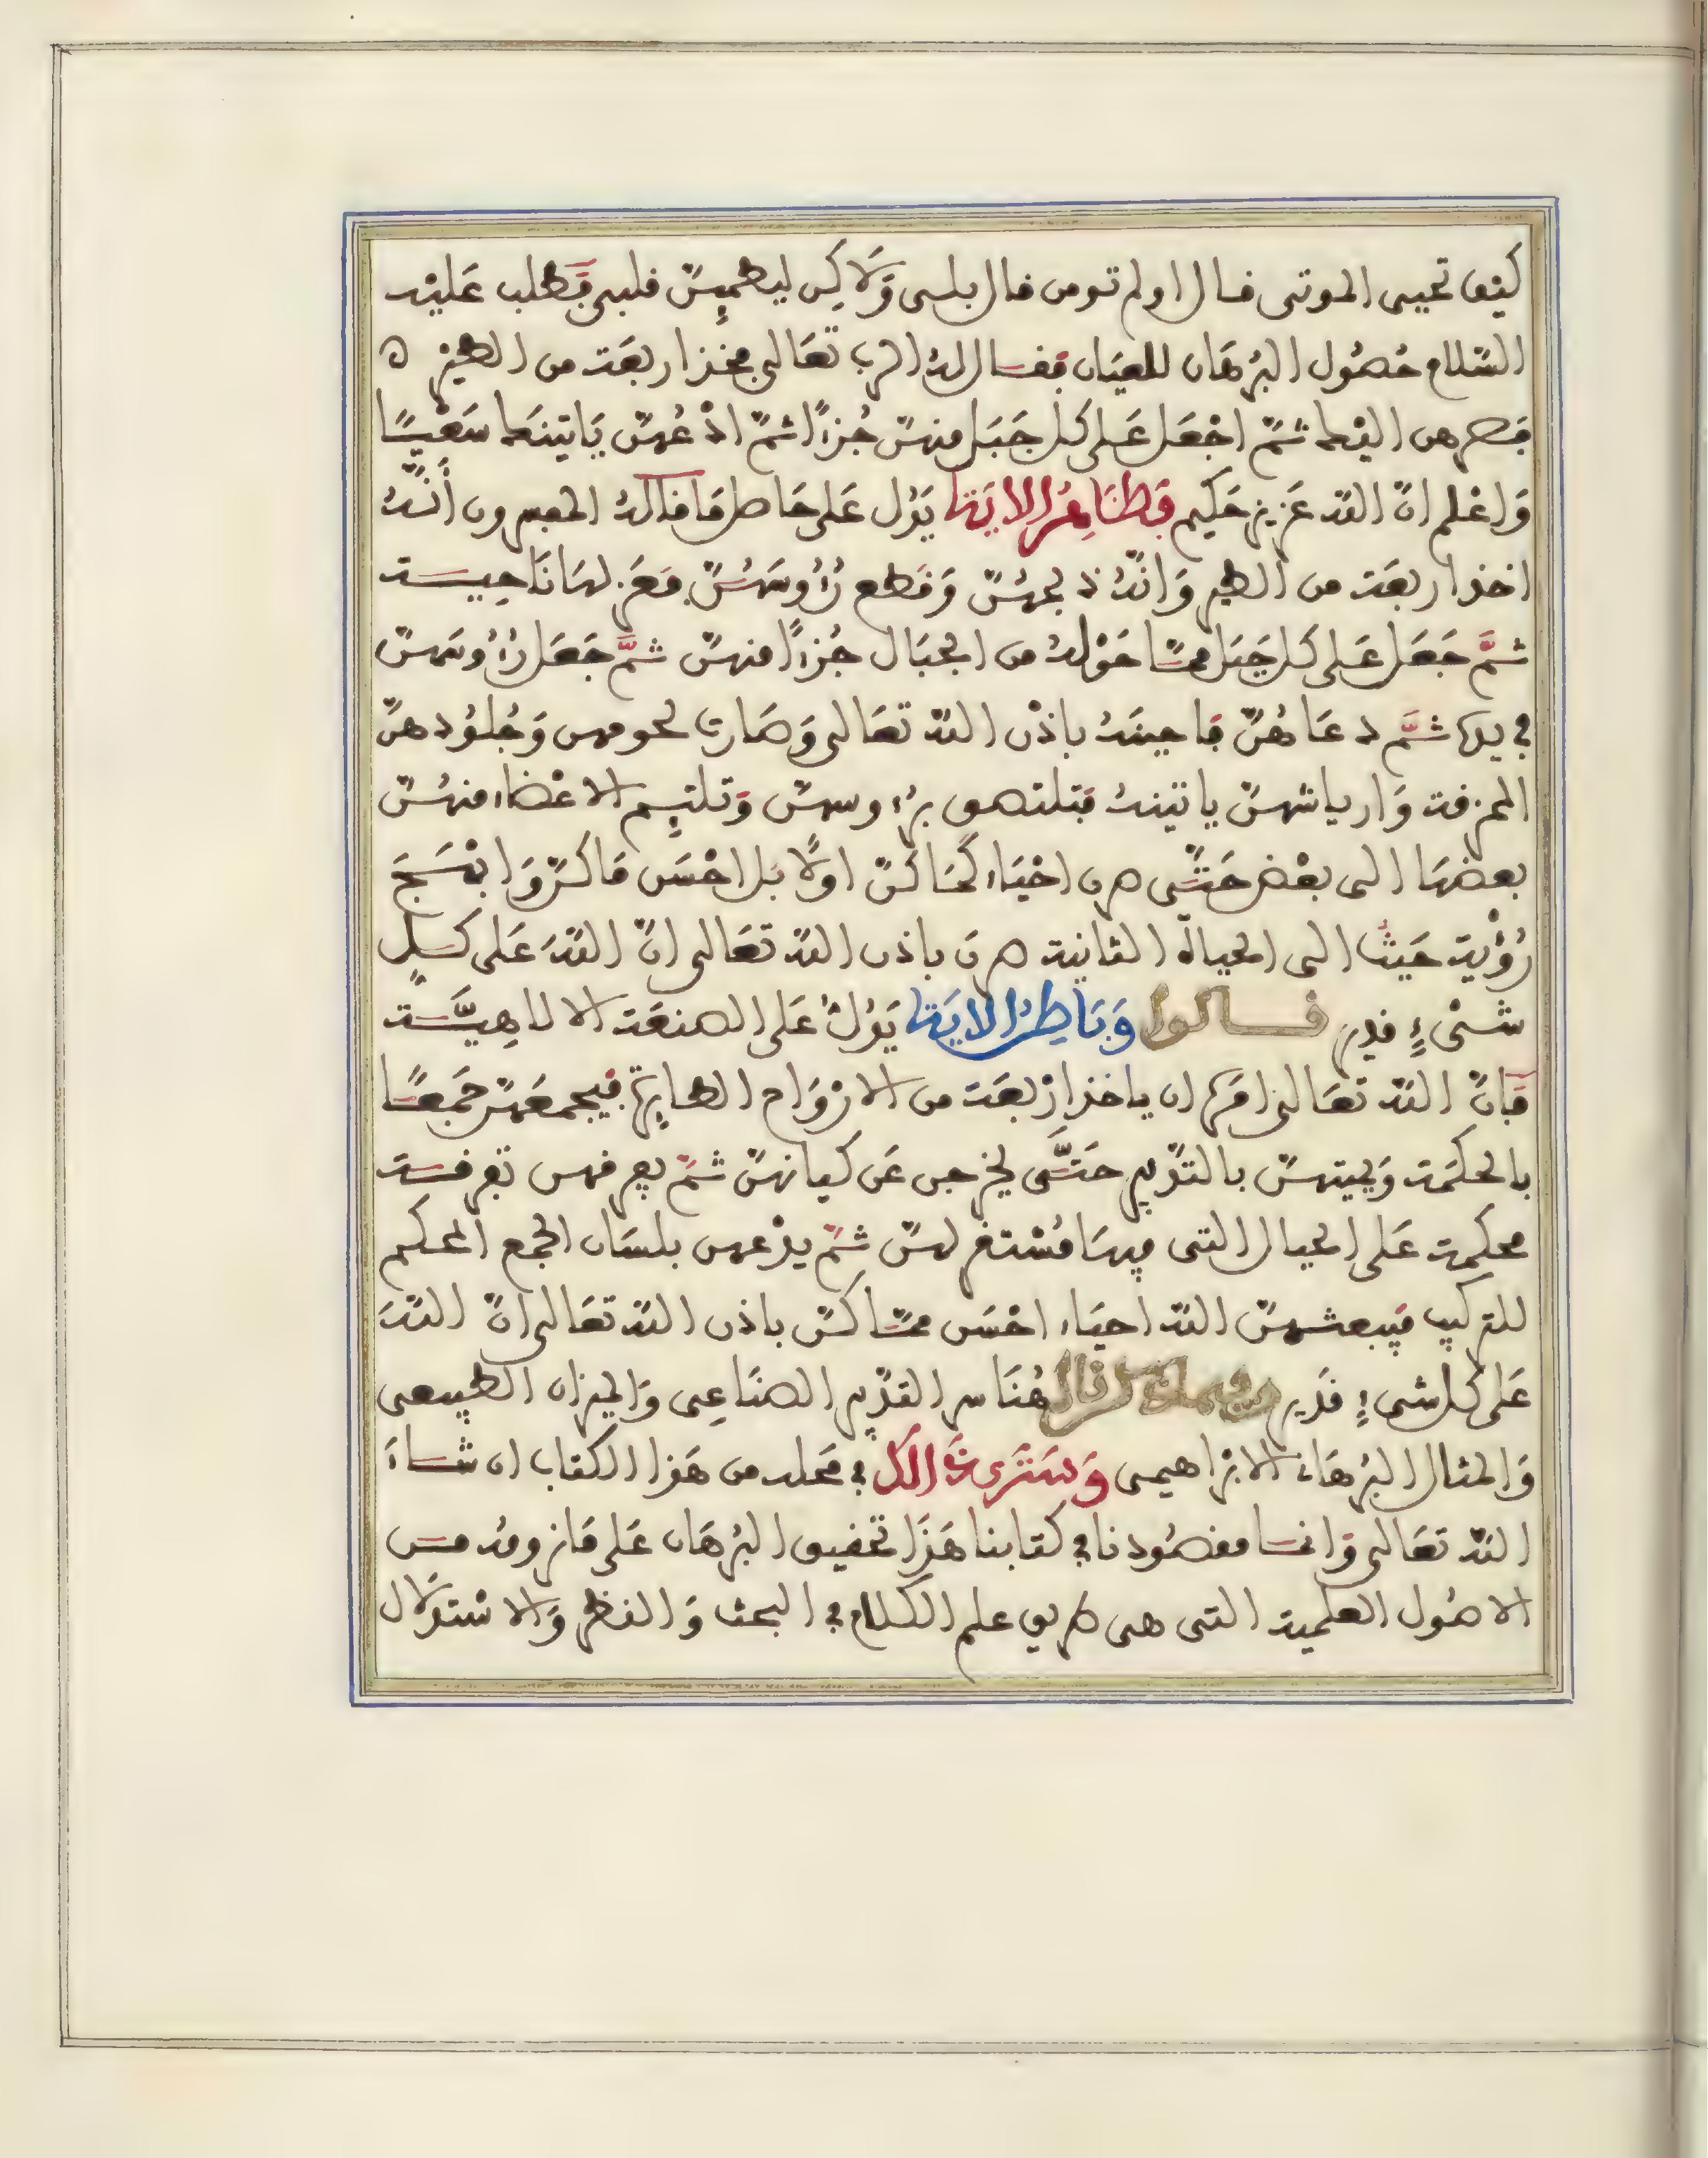 كيف تحيى الموتى قال اولم تومن قال بلى وَلَاكِن ليطمئِنّ قلبى فَطلب عَليْه
السّلام حُصُول البُرهَان للعيَان فقال لهُ الرب تعَالى فخذ اربعَة من الطيْر
فصرهن اليْك ثمّ اجْعَل عَلى كل جَبَل منهنّ جُزءًا ثمّ ادْعُهنّ يَاتينَك سَعْيًا
وَاعْلم انّ اللّه عَزيز حَكيم فَظَاهِرُ الايَة يَدُل عَلى ظاهر مَا قالهُ المفسرون أنّهُ
اخذ اربعَة من الطير وَانّهُ ذبحهُنّ وَقطع رُءُوسَهُنّ فعَزلهَا نَاحِيَة
ثمَّ جَعَل عَلى كل جَبَل ممّا حَوْلهُ من الجبَال جُزءًا منهنّ ثمَّ جَعَل رُءُوسَهنّ
في يده ثمَّ دعَاهُنّ فاجبنَهُ باذْن اللّه تعَالى وَصَارت لحومهن وَجُلُودهنّ
الممزقة وَاريَاشهنّ ياتينهُ فتلتصق برءُوسهنّ وَتلتئِم الاعْضاء منهُنّ
بعضهَا الى بعْض حَتّى صرن احْيَاء كمَا كنّ اولًا بَل احْسَن مَا كنّ وَابْهَجَ
رُؤْية حَيثُ الى الحياة الثانية صرنَ باذن اللّه تعَالى انّ اللّهَ عَلى كلِّ
شىْءٍ قدير قالوا وَبَاطِنُ الايَة يَدُلُّ عَلى الصنعَة الالاهِيَّة
فَانّ اللّه تعَالى امَرَه ان ياخذ ارْبعَة من الارْوَاح الطايرة فيجمعَهنّ جَمعًا
بالحكمَة وَيميتهنّ بالتدْبير حَتَّى يخرجن عَن كيانهنّ ثمّ يفرقهن تفرقة
محكمة عَلى الجبال التى فيهَا مُسْتقر لهنّ ثمّ يدْعهن بلسَان الجمع المحكم
للتركيب فيبعثهنّ اللّه احيَاء احْسَن ممّا كنّ باذن اللّه تعَالى انّ اللّهَ
عَلى كل شىءٍ قدَير هُنَا سر التدْبير الصنَاعِى وَالميزان الطبيعى
وَالمثال البُرهَان الابْرَاهيمى وَسَتَرى ذَ الكَ في مَحله من هَذا الكتاب ان شاءَ
اللّه تعَالى وَانما مقصُودنا في كتابنا هَذَا تحقيق البُرهَان عَلى مَا نرومُه من
الاصُول العلمية التى هى طريق علم الكلام في البحث وَالنظر وَالاسْتدْلَال